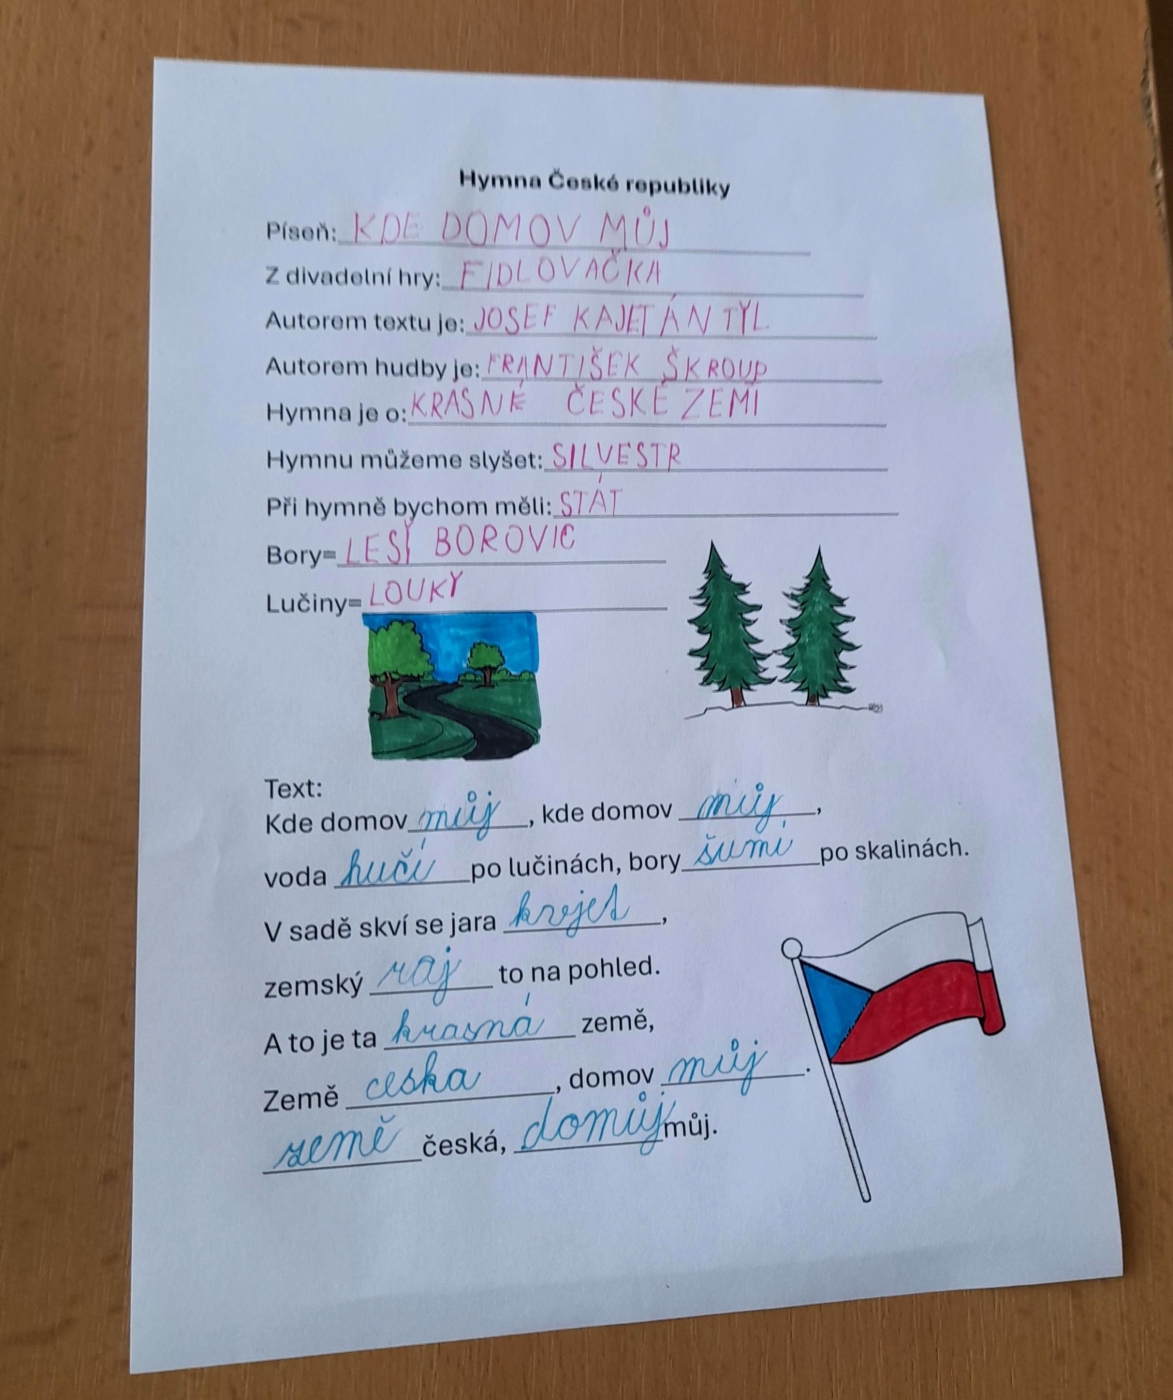 Hymna České republiky
Píseň: KDE DOMOV MŮJ
Z divadelní hry: FIDLOVAČKA
Autorem textu je: JOSEF KAJETÁN TYL
Autorem hudby je: FRANTIŠEK ŠKROUP
Hymna je o: KRÁSNÉ ČESKÉ ZEMI
Hymnu můžeme slyšet: SILVESTR
Při hymně bychom měli: STÁT
Bory= LESÍ BOROVIC
Lučiny= LOUKY
Text:
Kde domov můj, kde domov můj,
voda hučí po lučinách, bory šumí po skalinách.
V sadě skví se jara kvjet,
zemský raj to na pohled.
A to je ta krasná země,
Země ceska, domov můj.
země česká, domůj můj.